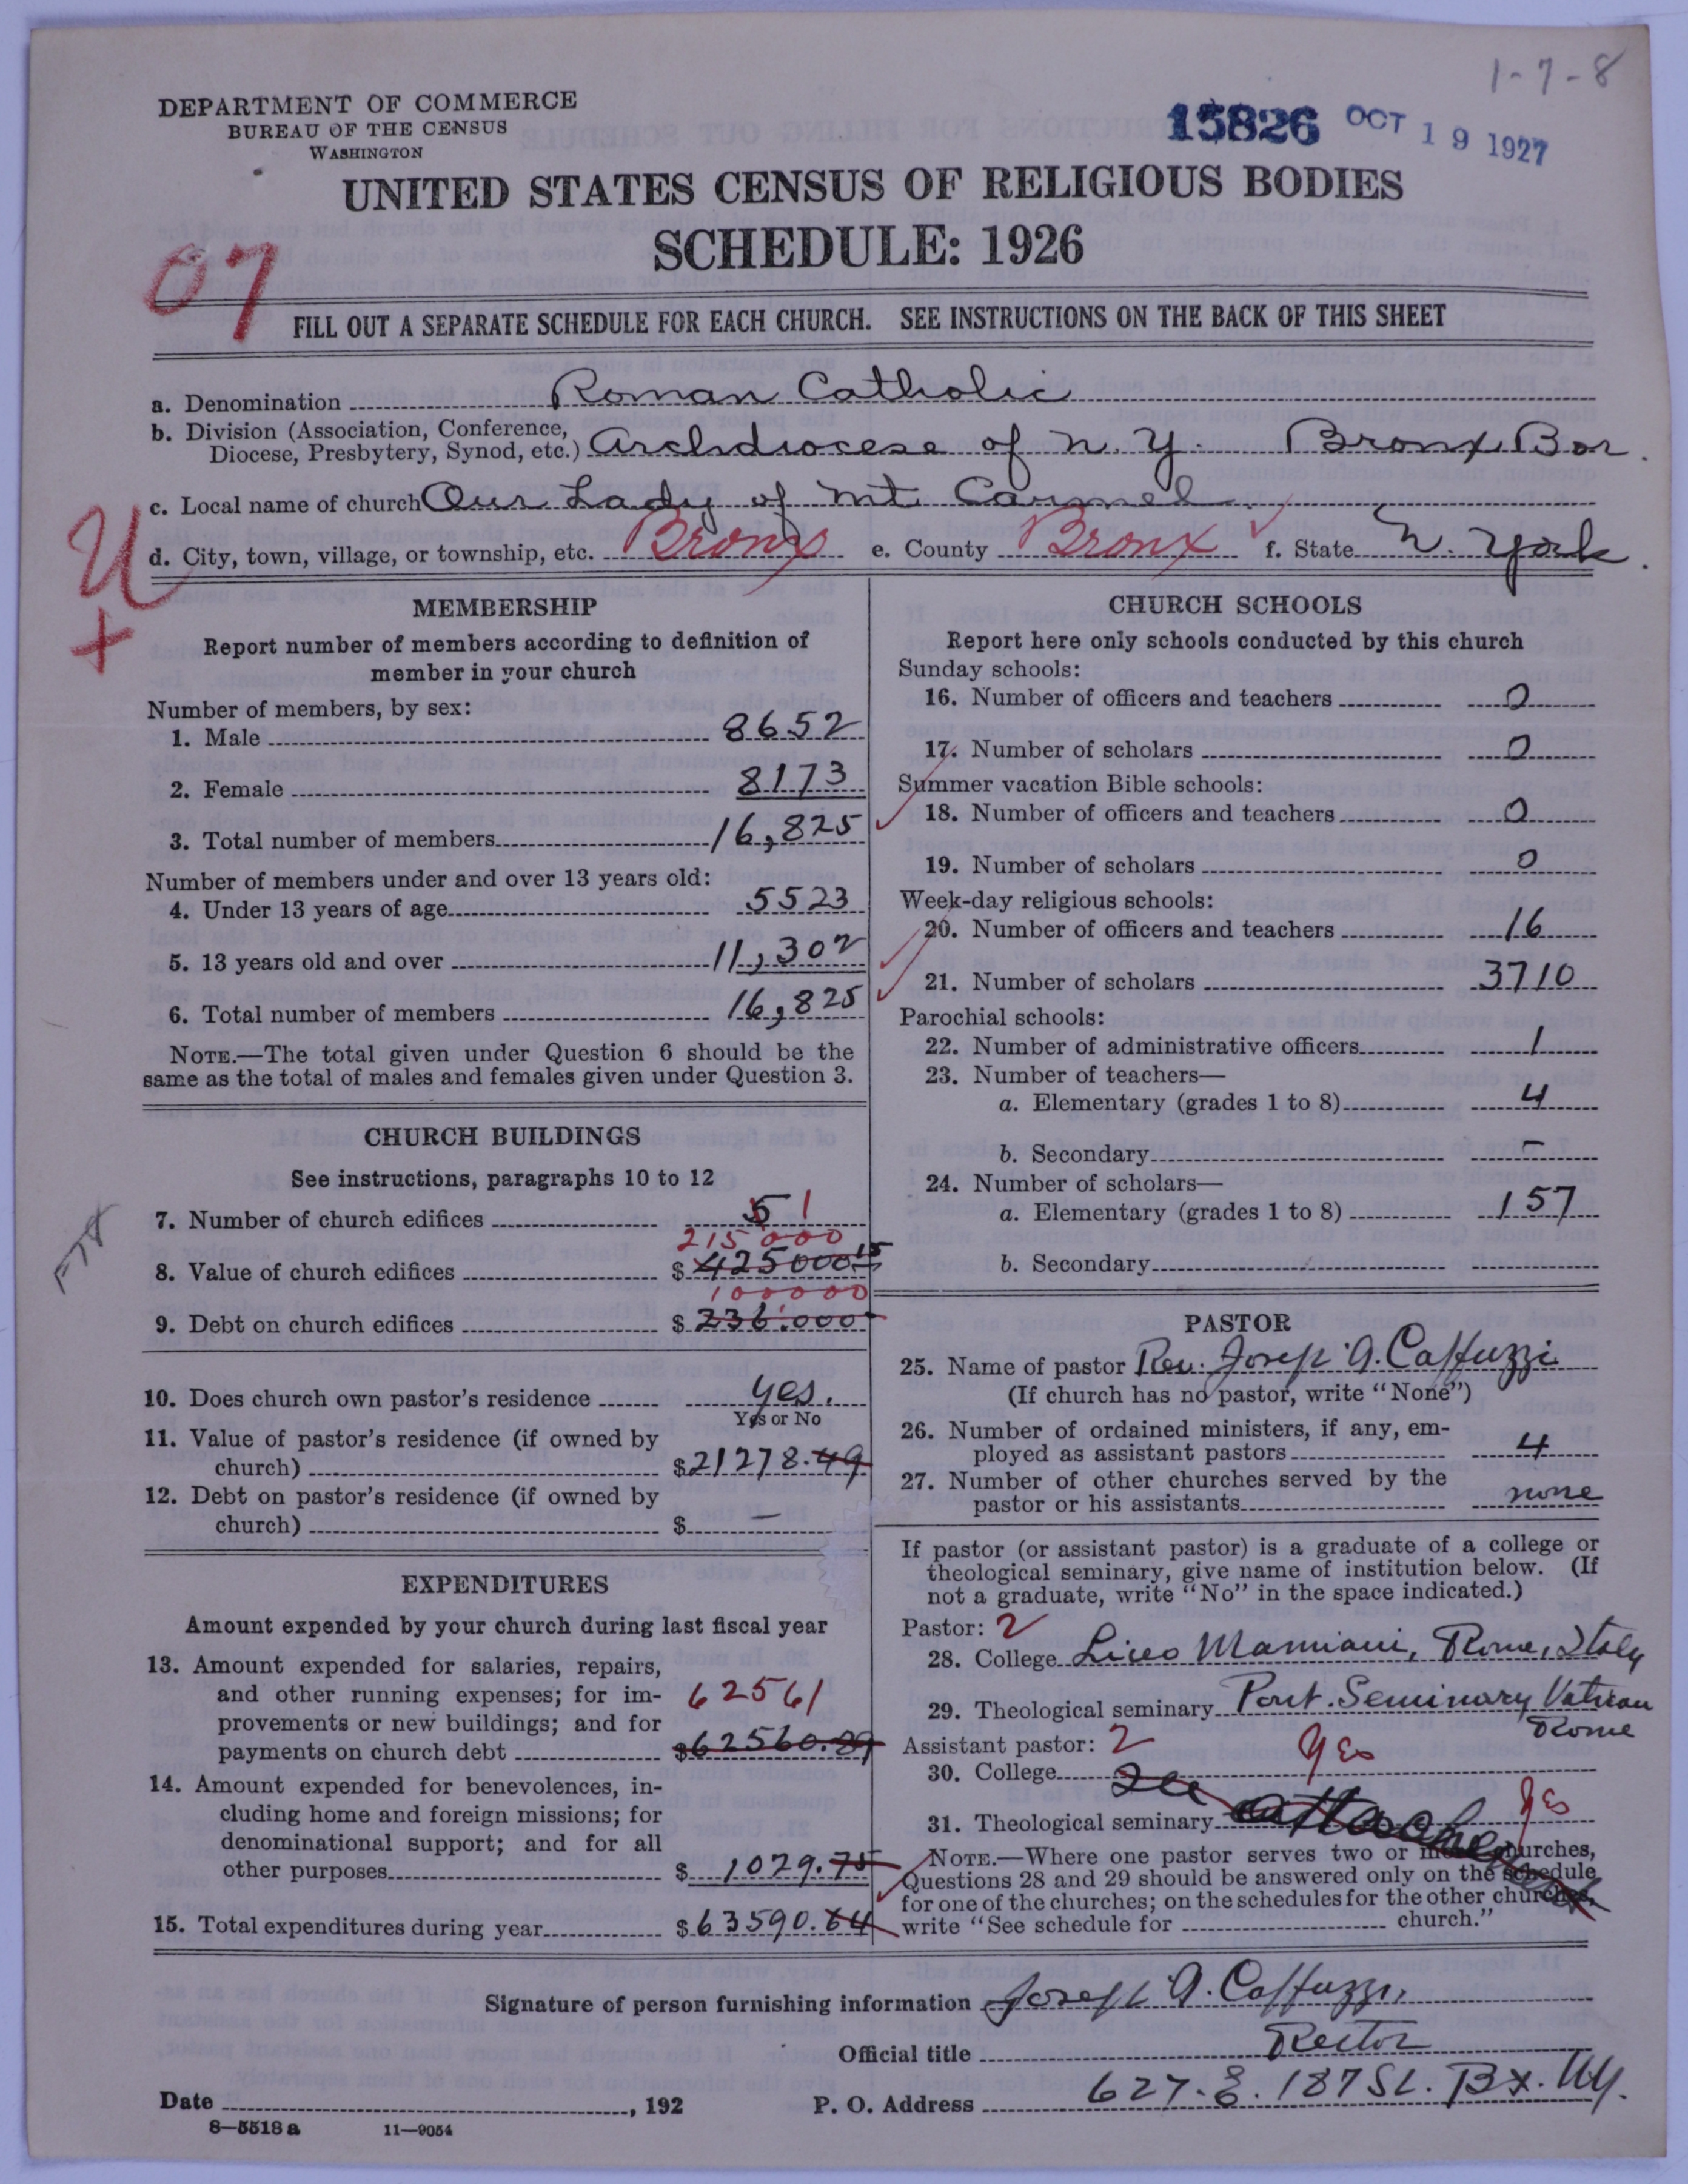 1-7-8
DEPARTMENT OF COMMERCE
BUREAU OF THE CENSUS
WASHINGTON
15826 OCT 19 1927
UNITED STATES CENSUS OF RELIGIOUS BODIES
SCHEDULE: 1926
07
FILL OUT A SEPARATE SCHEDULE FOR EACH CHURCH. SEE INSTRUCTIONS ON THE BACK OF THIS SHEET
a. Denomination Roman Catholic
b. Division (Association, Conference, Diocese, Presbytery, Synod, etc.) Archdiocese of N. Y. Bronx Bor.
c. Local name of church Our Lady of Mt. Carmel.
d. City, town, village, or township, etc. Bronx e. County Bronx f. State N. York.
U
+
MEMBERSHIP
Report number of members according to definition of
member in your church
Number of members, by sex:
1. Male 8652
2. Female 8173
3. Total number of members 16,825
Number of members under and over 13 years old:
4. Under 13 years of age 5523
5. 13 years old and over 11,302
6. Total number of members 16,825
NOTE.—The total given under Question 6 should be the
same as the total of males and females given under Question 3.
CHURCH BUILDINGS
See instructions, paragraphs 10 to 12
7. Number of church edifices 5 1
215000
8. Value of church edifices $ 425000
100000
9. Debt on church edifices $ 236.000
10. Does church own pastor's residence yes.
Yes or No
11. Value of pastor's residence (if owned by
church) $ 21278.49
12. Debt on pastor's residence (if owned by
church) $ —
EXPENDITURES
Amount expended by your church during last fiscal year
13. Amount expended for salaries, repairs,
and other running expenses; for im- 62561
provements or new buildings; and for
payments on church debt $ 62560.89
14. Amount expended for benevolences, in-
cluding home and foreign missions; for
denominational support; and for all
other purposes $ 1029.75
15. Total expenditures during year $ 63590.64
CHURCH SCHOOLS
Report here only schools conducted by this church
Sunday schools:
16. Number of officers and teachers 0
17. Number of scholars 0
Summer vacation Bible schools:
18. Number of officers and teachers 0
19. Number of scholars 0
Week-day religious schools:
20. Number of officers and teachers 16
21. Number of scholars 3710
Parochial schools:
22. Number of administrative officers 1
23. Number of teachers—
a. Elementary (grades 1 to 8) 4
b. Secondary —
24. Number of scholars—
a. Elementary (grades 1 to 8) 157
b. Secondary
PASTOR
25. Name of pastor Rev. Joseph A. Caffuzzi
(If church has no pastor, write "None")
26. Number of ordained ministers, if any, em-
ployed as assistant pastors 4
27. Number of other churches served by the
pastor or his assistants none
If pastor (or assistant pastor) is a graduate of a college or
theological seminary, give name of institution below. (If
not a graduate, write "No" in the space indicated.)
Pastor: 2
28. College Liceo Mamiani, Rome, Italy
29. Theological seminary Pont. Seminary Vatican
Rome
Assistant pastor: 2
30. College See Yes
31. Theological seminary attached Yes
NOTE.—Where one pastor serves two or more churches,
Questions 28 and 29 should be answered only on the schedule
for one of the churches; on the schedules for the other churches,
write "See schedule for church."
Signature of person furnishing information Joseph A. Caffuzzi,
Official title Rector
Date , 192
P. O. Address 627. E. 187 St. Bx. NY.
8—5518 a 11—9054